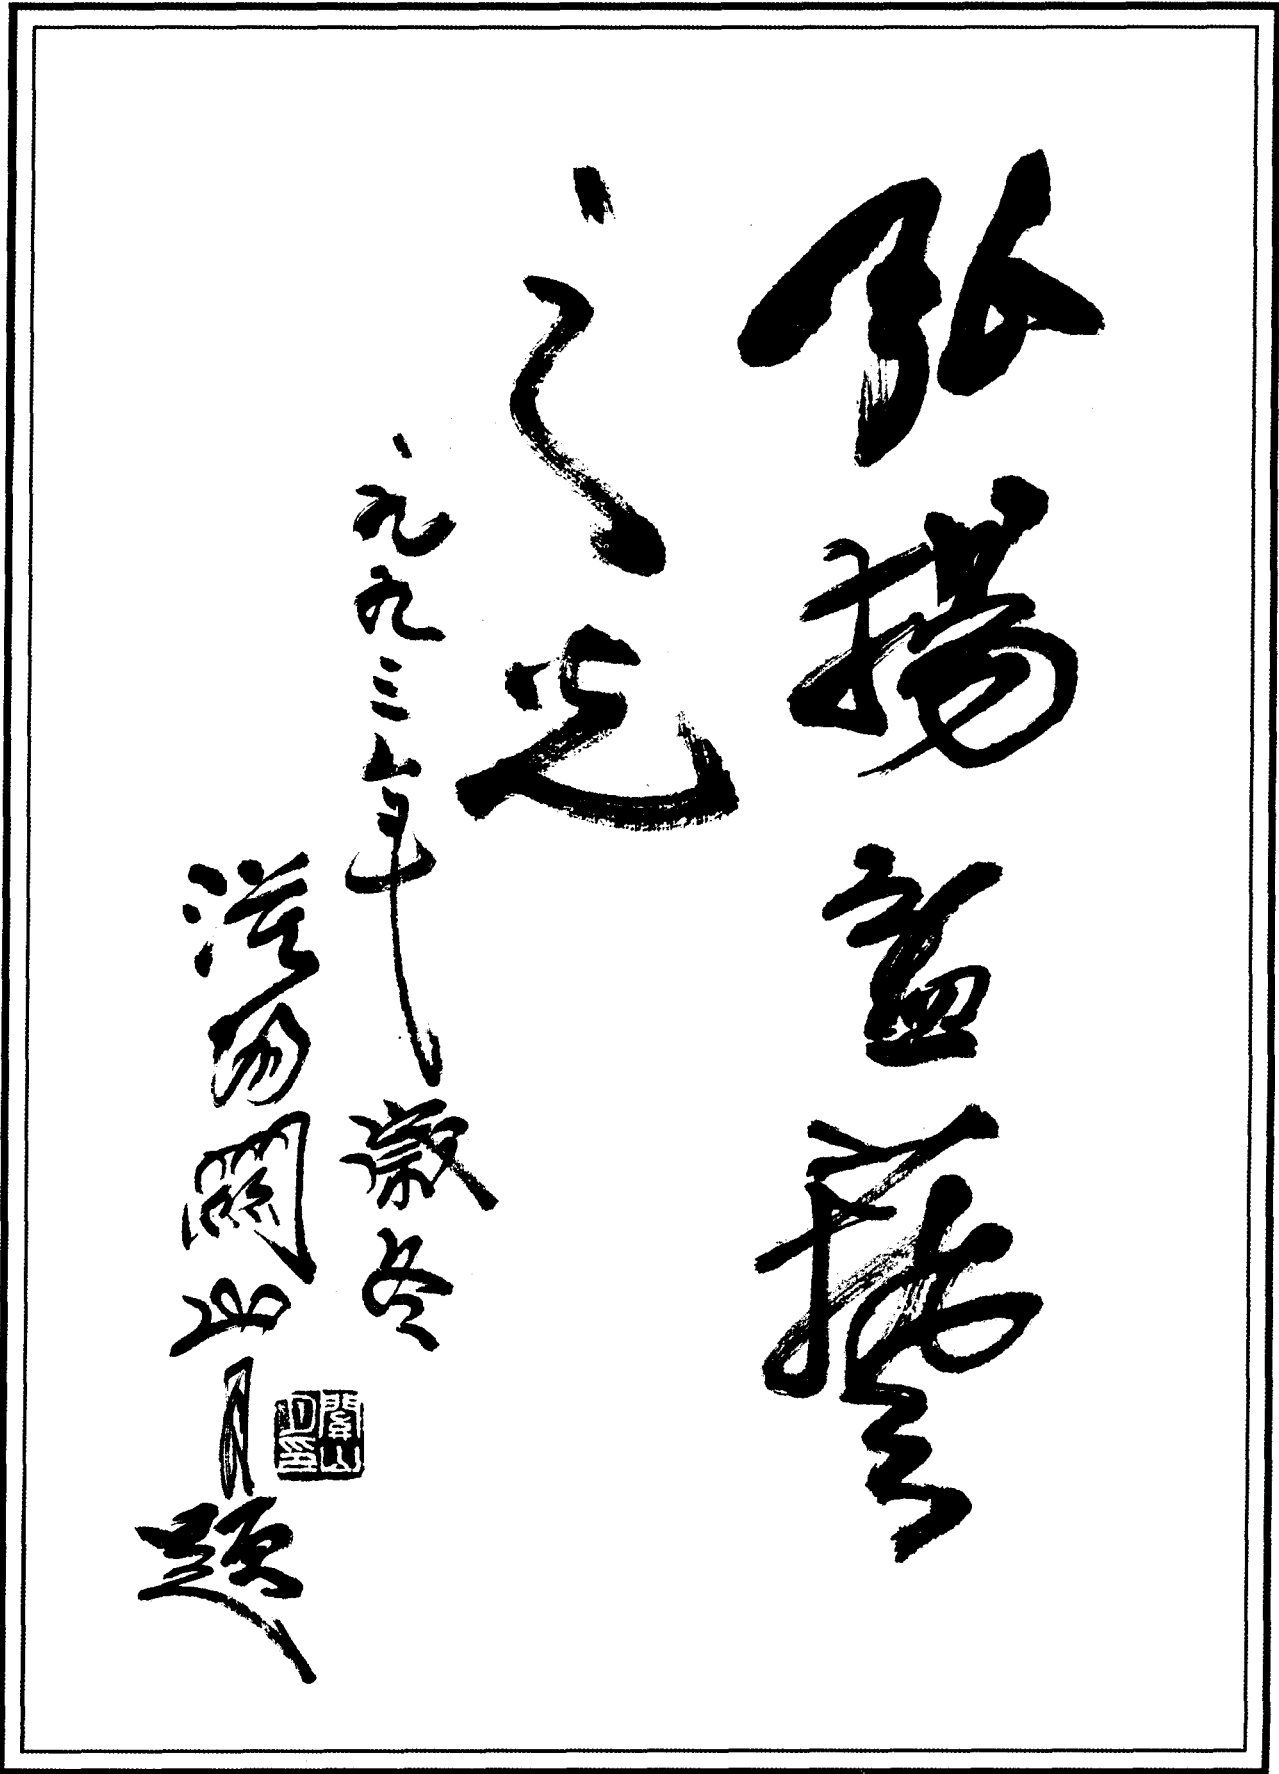 弘揚藝
之光
一九九三年歲冬
漠陽關山月題
關山月印